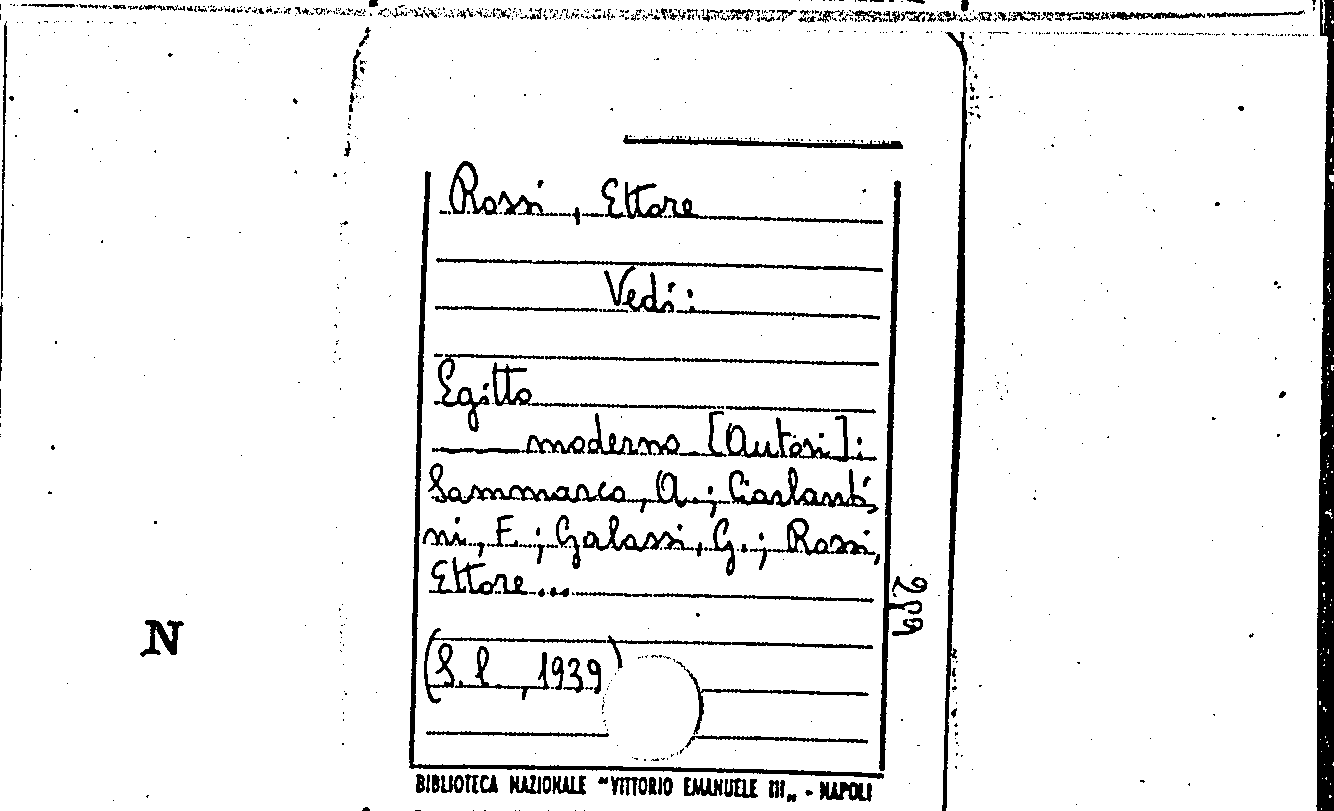 Rossi, Ettore
Vedi:
Egitto
moderno [Autori]:
Sammarco, A.; Ciarlanti-
ni, F.; Galassi, G.; Rossi,
Ettore...
N
(S. l., 1939)
BIBLIOTECA NAZIONALE "VITTORIO EMANUELE III„ - NAPOLI